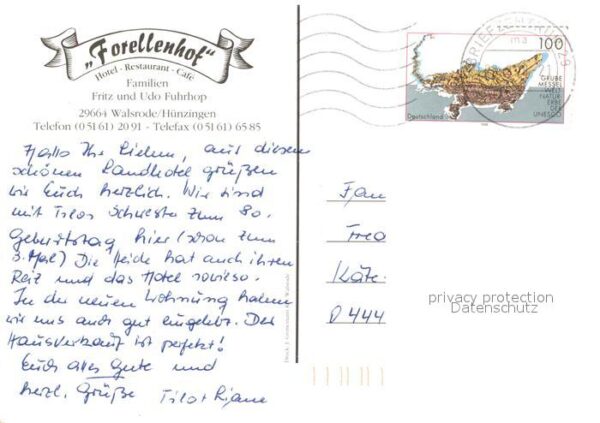 „Forellenhof“
Hotel - Restaurant - Café
Familien
Fritz und Udo Fuhrhop
29664 Walsrode/Hünzingen
Telefon (0 51 61) 20 91 - Telefax (0 51 61) 65 85
Hallo Ihr Lieben, aus diesem
schönen Landhotel grüßen
wir Euch herzlich. Wir sind
mit Tilos Schwester zum 80.
Geburtstag hier (schon zum
3. Mal) Die Heide hat auch ihren
Reiz und das Hotel sowieso.
In der neuen Wohnung haben
wir uns auch gut eingelebt. Der
Hausverkauf ist perfekt!
Euch alles Gute und
herzl. Grüße Tilo +
BRIEFZENTRUM
100
GRUBE
MESSEL
WELT
NATUR
ERBE
DER
UNESCO
Deutschland
Käte
D 444
privacy protection
Datenschutz